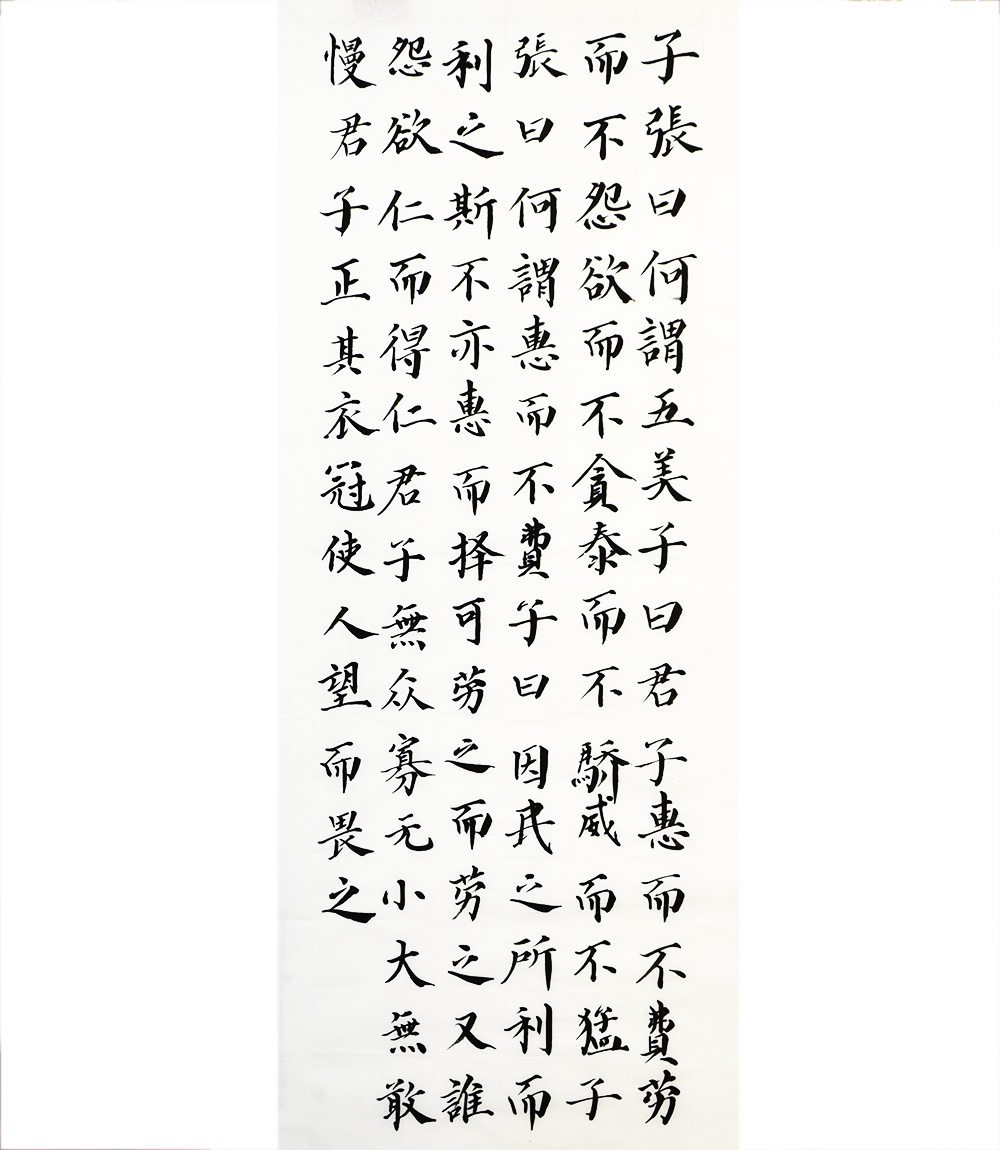 子張曰何謂五美子曰君子惠而不費劳
而不怨欲而不貪泰而不驕威而不猛子
張曰何謂惠而不費子曰因民之所利而
利之斯不亦惠而择可劳之而劳之又誰
怨欲仁而得仁君子無众寡无小大無敢
慢君子正其衣冠使人望而畏之